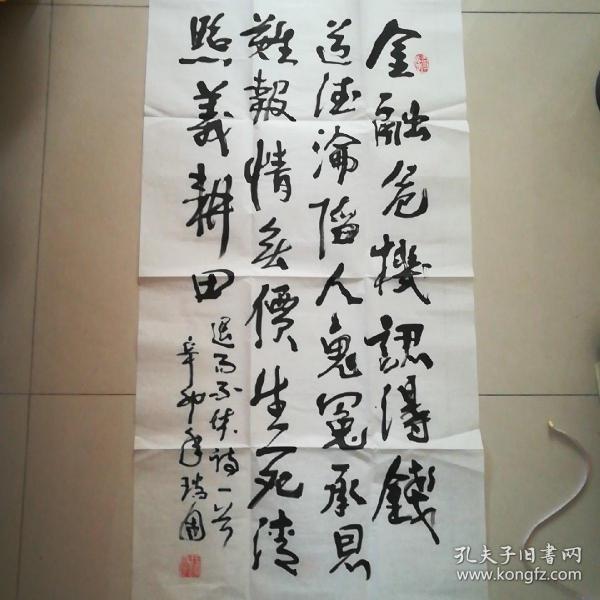 金融危機認得錢
道德淪陷人鬼冤承恩
難報情無價生死情
照義耕田
退而不休詩一首
辛卯年瑞圃
孔夫子旧书网
www.kongfz.com